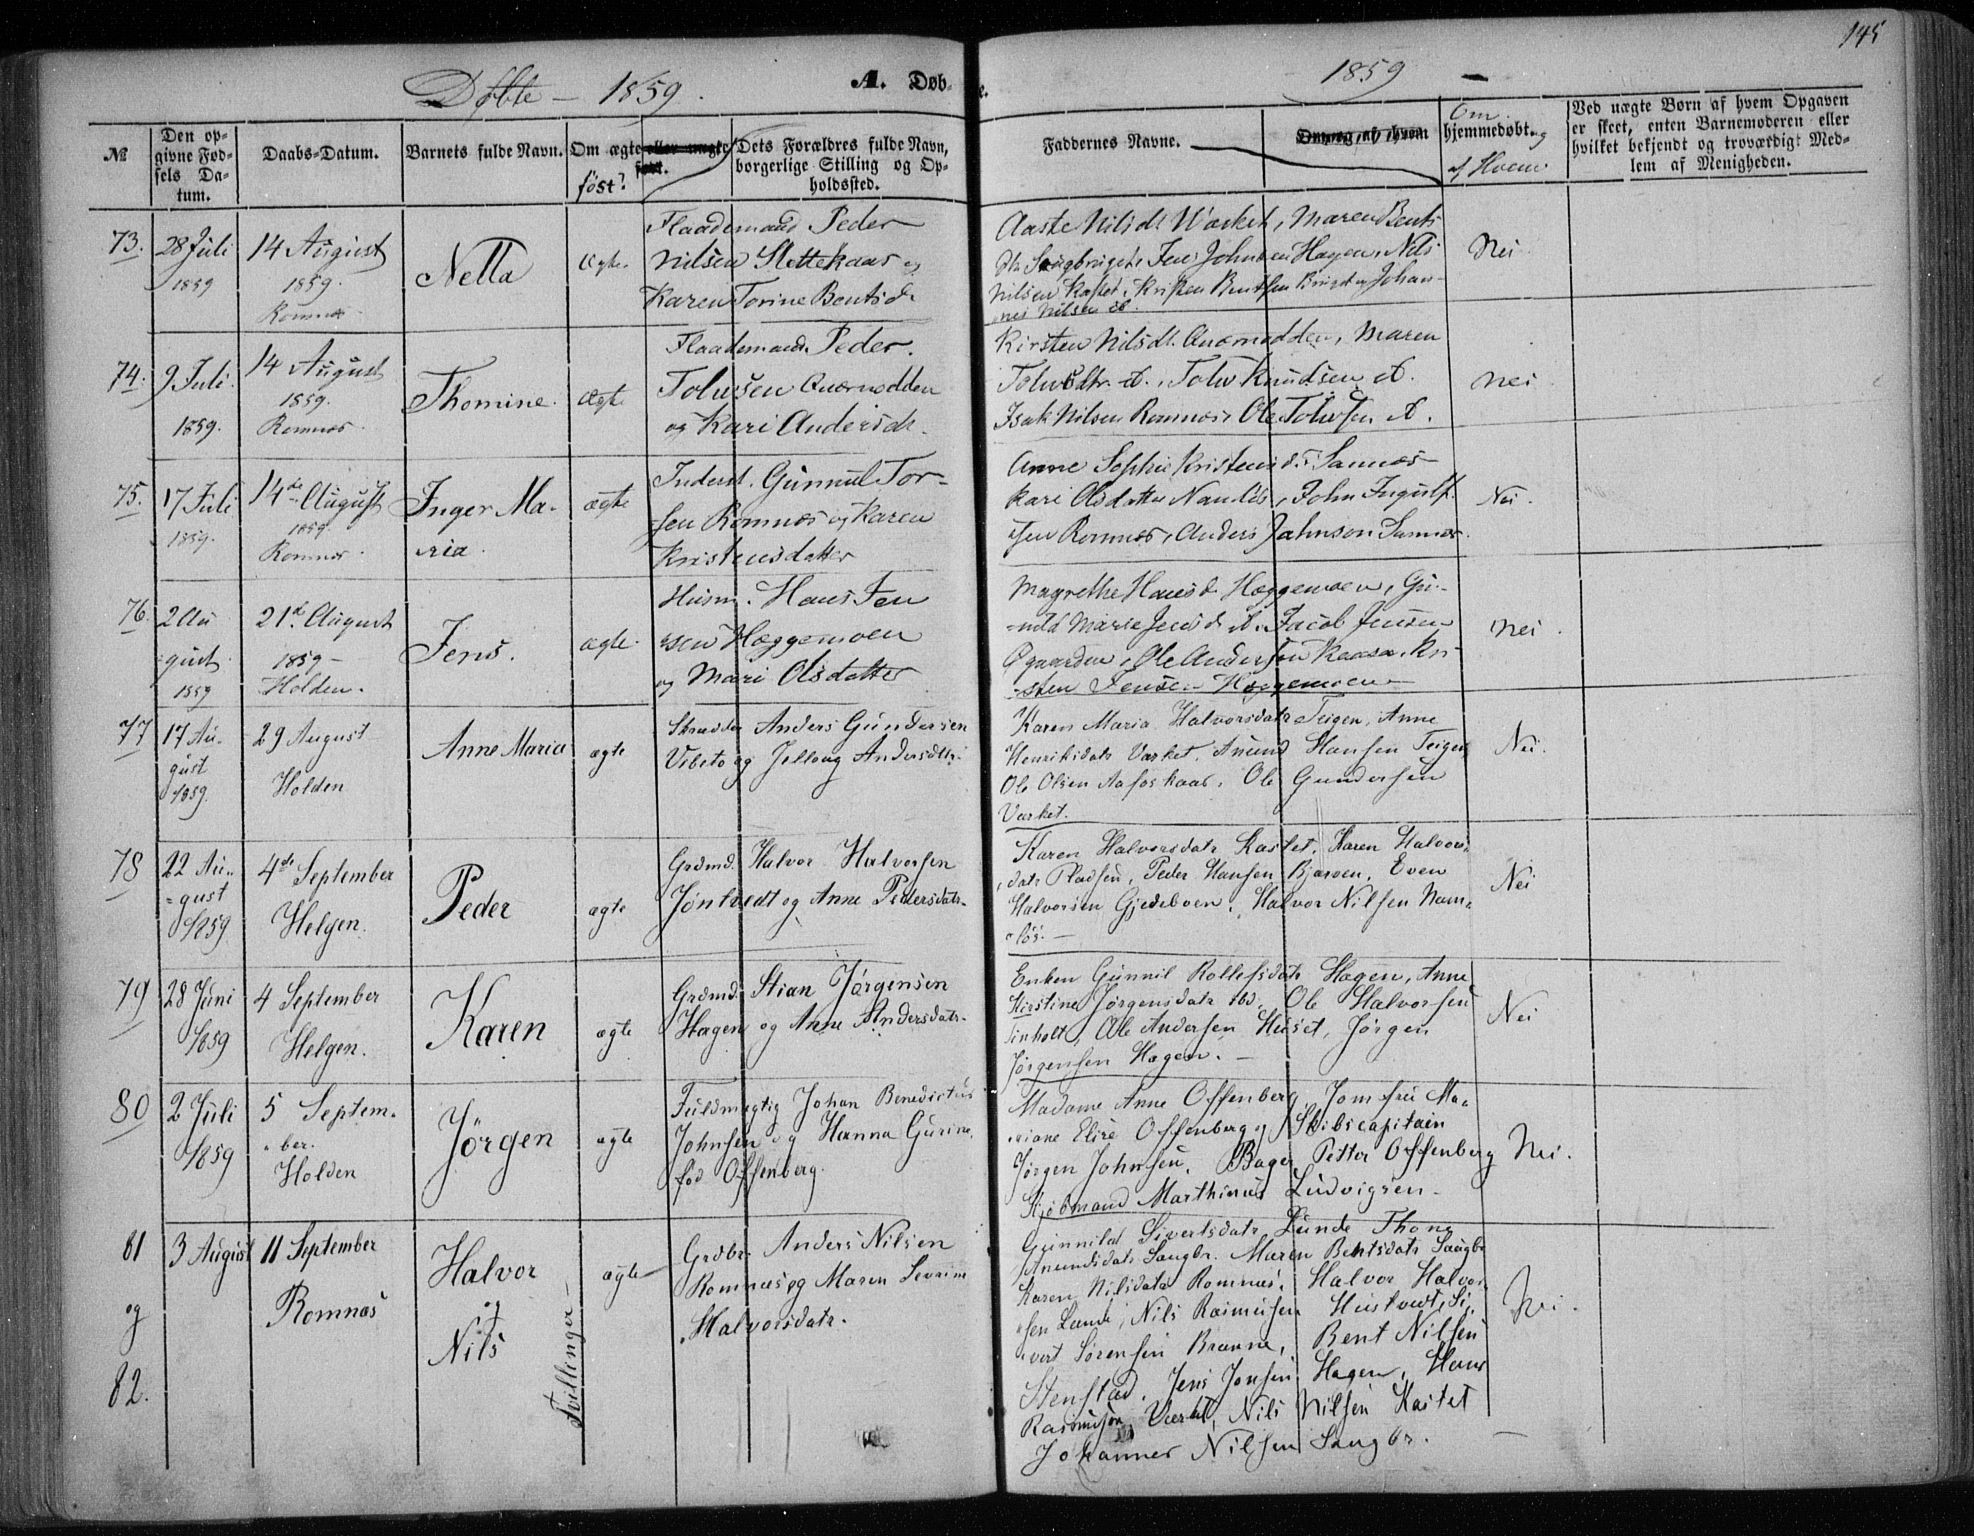 145
Døbte – 1859.
A. Døb-
e.
1859 –
№
Den op-
givne Fød-
sels Da-
tum.
Daabs-Datum.
Barnets fulde Navn.
Om ægte eller uægte
født.
föst?
Dets Forældres fulde Navn,
borgerlige Stilling og Op-
holdssted.
Faddernes Navne.
Om
hjemmedøbt og
af Hvem
Ved uægte Børn af hvem Opgaven
er skeet, enten Barnemoderen eller
hvilket bekjendt og troværdigt Med-
lem af Menigheden.
73.
28 Juli
1859
14 August
1859.
Romnæs
Nella
Ægte
Flaademand Peder
Nilsen Slettekaas og
Karen Torine Bentsd.
Aaste Nilsdt Værket, Maren Bents
dtr Saugbruget, Jens Johnsen Hagen, Nils
Nilsen Kastet, Kristen Bentsen og Johan-
nes Nilsen ib.
Nei
74.
9 Juli
1859.
14 August
1859.
Romnæs
Thomine
Ægte
Flaademand Peder
Tolvsen Qvernodden
og Kari Andersdt.
Kirsten Nilsdt. Qvernodden, Maren
Tolvsdtr. ib., Tolv Knudsen ib.
Isak Nilsen Romnæs, Ole Tolvsen ib.
Nei
75.
17 Juli
1859.
14de August
1859.
Romnæs
Inger Ma-
ria
ægte
Inderst. Gunnul Tor-
sen Romnæs og Karen
Kristensdatter
Anne Sophie Kristensd. Sannæs
Kari Olsdatter Namløs, John Ingulf-
sen Romnæs, Anders Johnson Sannæs.
Nei.
76.
2 Au
gust
1859
21de August
1859 –
Holden.
Jens.
ægte
Husm. Hans Jen
sen Hæggemoen
og Mari Olsdatter
Magrethe Hansd. Hæggemoen, Gu-
nild Marie Jensd. ib. Jacob Jensen
Øgaarden, Ole Andersen Kaasa, Kri-
sten Jensen Hæggemoen
Nei
77
17 Au-
gust
1859.
29 August
Holden
Anne Maria
ægte
Skrædder Anders Gundersen
Vibeto og Jellaug Andersdtr.
Karen Maria Halvorsdatr Teigen, Anne
Henriksdatr Værket, Amund Hansen Teigen
Ole Olsen Aafoskaas, Ole Gundersen
Værket.
Nei.
78
22 Au-
gust
1859
4de September
Helgen.
Peder
ægte
Grdmd. Halvor Halvorsen
Jöntvedt og Anne Pedersdatr.
Karen Halvorsdatr Kastet, Karen Halvors
datr Pladsen, Peder Hansen Bjærven, Even
Halvorsen Gjedeboen, Halvor Nilsen Nam-
lös. –
Nei
79
28 Juni
1859
4 September
Helgen.
Karen
ægte
Grdmd. Stian Jørgensen
Hagen og Anne Andersdatr.
Enken Gunnil Rollefsdatr Hagen, Anne
Kirstine Jørgensdatr ibd, Ole Halvorsen
Ole Andersen Huset, Jørgen
Jørgensen Hagen. –
Nei
80
2 Juli
1859
5 Septem-
ber.
Holden
Jörgen
ægte
Fuldmægtig Johan Benedictus
Johnsen og Hanna Gurine
fød Offenberg.
Madame Anne Offenberg, Jomfru Ma-
riane Elise Offenberg og Skibscapitain
Jørgen Johnsen, Bager Petter Offenberg
Kjøbmand Marthinus Ludvigsen –
Nei.
81
og
82.
3 August
11 September
Romnæs
Halvor
og
Nils
Tvillinger –
ægte
Grdbr. Anders Nilsen
Romnæs og Maren Sevrine
Halvorsdatr.
Gunnild Sivertsdatr Lunde, Thone
Amundsdatr Saugbr. Maren Bentsdatr Saugbr
Karen Nilsdatr Romnæs, Halvor Halvor-
sen Lunde, Nils Rasmusen Hustvedt, Si-
vert Sørensen Brenne, Bent Nilsen
Stenstad, Jens Jonsen Hagen, Hans
Rasmusen Værket, Nils Nilsen Kastet
Johannes Nilsen Saugbr. –
Nei.